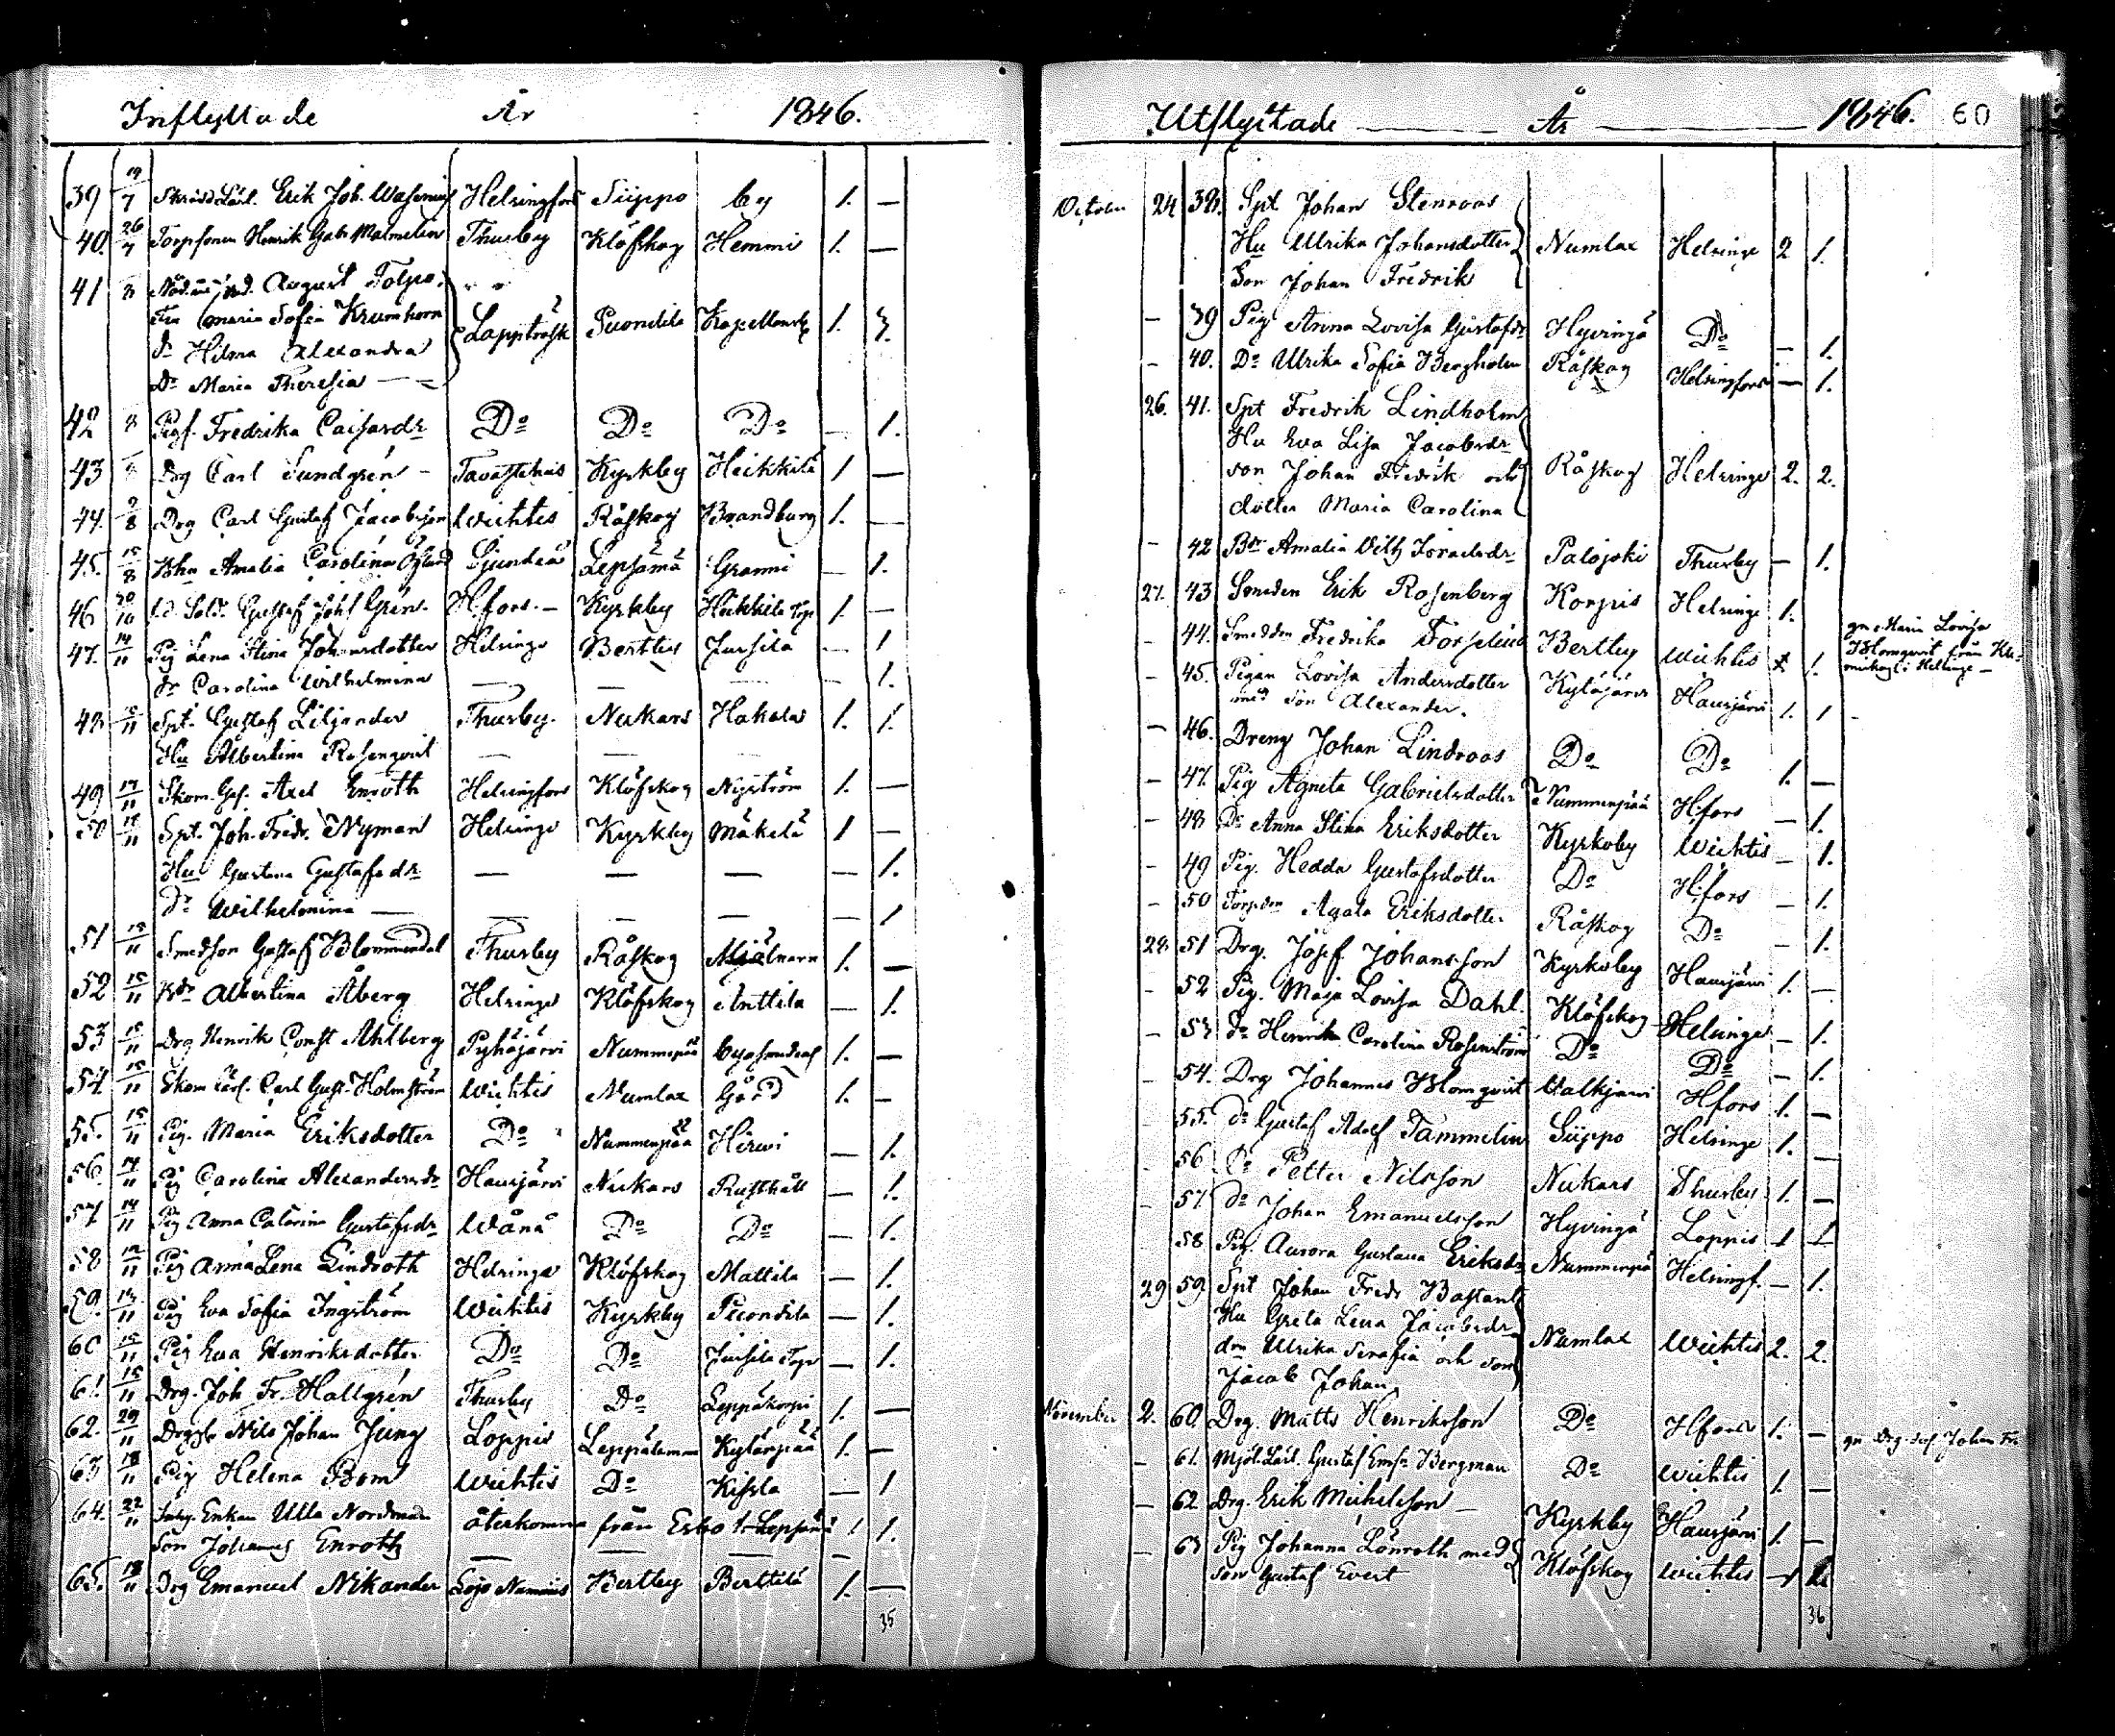 Inflyttade År 1846.
39 19/7 Skrädd.Lärl. Erik Joh. Wasenius Helsingfors Siippo by 1. —
40. 26/7 Torpsonen Henrik Gabr Malmelin Thusby Klöfskog Hemmi 1. —
41 8 August Tolpo,
Fru Maria Sofia Krumhorn
dr Hilma Alexandra Lappträsk Puondila 1. 3.
Do Maria Theresia —
42 8 Pigf. Fredrika Caisasdr Do Do Do — 1.
43 8 Drg Carl Sundgrén — Tavastehus Kyrkby Heikkilä 1 —
44. 9/8 Drg Carl Gustaf Jacobsson Wichtis Råskog Brandburg 1. —
45. 15/8 Amalia Carolina Öglund Sjundeå Lepsämä Granni — 1.
46 30/10 Sold. Gustaf Joh. Grén. H:fors. — Kyrkby Heikkilä Torp 1. —
47. 14/11 Pig Lena Stina Johansdotter Helsinge Bertby Jussila — 1
dr Carolina Wilhelmina — — — — 1.
48 15/11 Spt. Gustaf Liljander Thusby. Nukars Hakala 1. 1.
Hu Albertina Rosenqvist — — —
49 17/11 Skom. Ges. Axel Enroth Helsingfors Klöfskog Nyström 1. —
50 15/11 Spt. Joh. Fredr. Nyman Helsinge Kyrkby Mäkelä 1 —
Hu Gustava Gustafsdr — — — — 1.
dr Wilhelmina — — — — — 1
51 15/11 Smedson Gustaf Blommendal Thusby Råskog Mjölnarn 1. —
52 15/11 Bdr Albertina Åberg Helsinge Klöfskog Anttila — 1.
53 15/11 Drg Henrik Const Ahlberg Pyhäjärvi Nummenpää 1. —
54. 15/11 Skom Lärl. Carl Gust. Holmström Wichtis Numlax Gård 1. —
55. 15/11 Pig. Maria Eriksdotter Do Nummenpää Hirvi — 1.
56 14/11 Pig Carolina Alexandersdr Hausjärvi Nukars Rusthåll — 1.
57. 14/11 Pig Anna Catarina Gustafsdr Wånå Do Do — 1.
58 12/11 Pig Anna Lena Lindroth Helsinge Klöfskog Mattila — 1.
59. 13/11 Pig Eva Sofia Ingström Wichtis Kyrkby Puondila — 1.
60 15/11 Pig Eva Henriksdotter Do Do Jussila Torp — 1.
61. 15/11 Drg. Joh Fr. Hallgrén Thusby Do Leppäkorpi 1. —
62. 29/11 Nils Johan Jung Loppis Leppälamm Kytänpää 1. —
63 18/11 Pig Helena Bom Wichtis Do Kissla — 1
64. 22/11 Enkan Ulla Nordman återkomna från Esbo t. Lepsämä 1 1.
Son Johannes Enroth — — — —
65. 18/11 Drg Emanuel Nikander Lojo Nummis Bertby Berttilä 1. —
35
Utflyttade — År — 1846. 60
October 24 38. Spt Johan Stenroos
Hu Ulrika Johansdotter Numlax Helsinge 2 1.
Son Johan Fredrik
— 39 Pig Anna Lovisa Gustafsdr Hyvingä Do — 1.
— 40. Do Ulrika Sofia Bergholm Råskog Helsingfors — 1.
26. 41. Spt Fredrik Lindholm
Hu Eva Lisa Jacobsdr
son Johan Fredrik och Råskog Helsinge 2. 2.
dotter Maria Carolina
— 42 Bdr Amalia Vilh Israelsdr Palojoki Thusby — 1.
27. 43 Smeden Erik Rosenberg Korpis Helsinge 1.
— 44. Fredrika Forselius Bertby Wichtis 1.
gn Maria Lovisa
Blomqvist från Kl-
i Helsinge —
— 45. Pigan Lovisa Andersdotter Kytäjärvi Hausjärvi 1. 1
med son Alexander.
— 46. Dreng Johan Lindroos Do Do 1. —
— 47. Pig Agneta Gabrielsdotter Nummenpää H:fors — 1.
— 48 Do Anna Stina Eriksdotter Kyrkoby Wichtis — 1.
— 49 Pig. Hedda Gustafsdotter Do H:fors — 1.
— 50 Agata Eriksdotter Råskog Do — 1.
28. 51 Drg. Josef Johansson Kyrkoby Hausjärvi 1. —
— 52 Pig. Maja Lovisa Dahl. Klöfskog Helsinge — 1.
— 53 Do Henrika Carolina Rosenström Do Do — 1.
— 54. Drg Johannes Blomqvist Walkjärvi Hfors 1. —
55. Do Gustaf Adolf Tammelin Siippo Helsinge 1. —
— 56 Do Petter Nilsson Nukars Thusby 1. —
— 57. Do Johan Emanuelsson Hyvingä Loppis 1 1
58 Pig. Aurora Gustava Eriksdr Nummenpää Helsingf. — 1.
29 59. Spt Johan Fredr Bastant
Hu Greta Lena Jacobsdr
dra Ulrika Serafia och son Numlax Wichtis 2. 2.
Jacob Johan
November 2. 60. Drg. Matts Henriksson Do Hfors 1. —
gn Drg Johan Fr.
— 61. Mjöl.Lärl. Gustaf Bergman Do Wichtis 1. —
— 62 Drg. Erik Michelsson — Kyrkby Hausjärvi 1. —
— 63 Pig Johanna Lönroth med
son Gustaf Evert Klöfskog Wichtis 1 1.
36